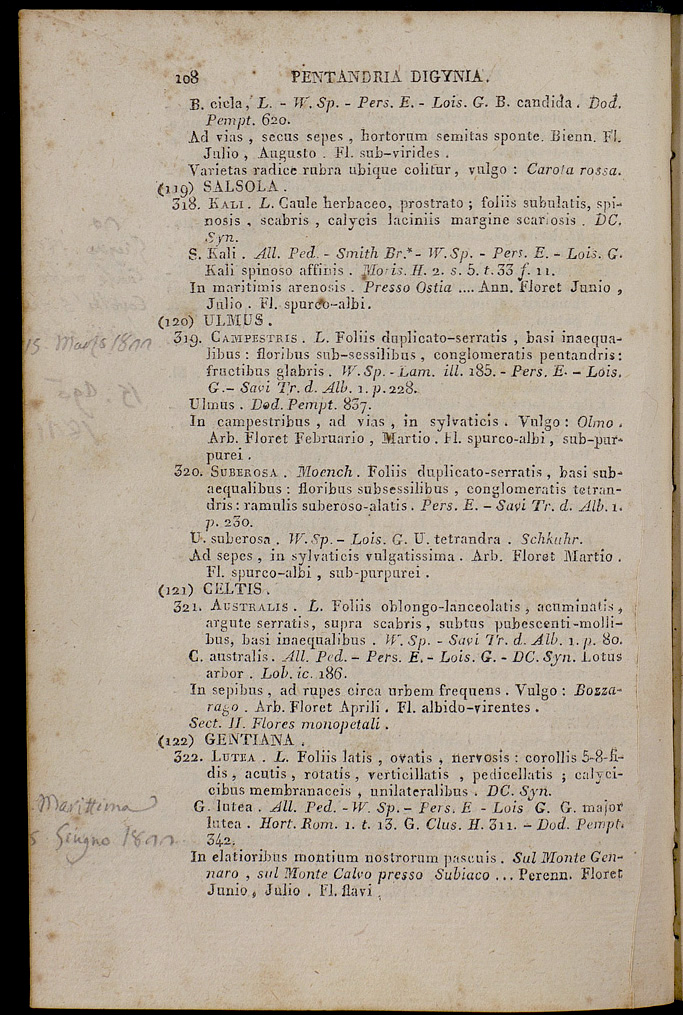 108 PENTANDRIA DIGYNIA.
B. cicla, L. - W. Sp. - Pers. E. - Lois. G. B. candida. Dod.
Pempt. 620.
Ad vias , secus sepes , hortorum semitas sponte. Bienn. Fl.
Julio , Augusto . Fl. sub-virides .
Varietas radice rubra ubique colitur, vulgo : Carota rossa.
(119) SALSOLA .
318. KALI. L. Caule herbaceo, prostrato ; foliis subulatis, spi-
nosis , scabris , calycis laciniis margine scariosis . DC.
Syn.
S. Kali . All. Ped. - Smith Br.*- W. Sp. - Pers. E. - Lois. G.
Kali spinoso affinis . Moris. H. 2. s. 5. t. 33 f. 11.
In maritimis arenosis . Presso Ostia .... Ann. Floret Junio ,
Julio . Fl. spurco-albi.
(120) ULMUS .
319. CAMPESTRIS . L. Foliis duplicato-serratis , basi inaequa-
libus : floribus sub-sessilibus , conglomeratis pentandris:
fructibus glabris . W. Sp. - Lam. ill. 185. - Pers. E. - Lois.
G.- Savi Tr. d. Alb. 1. p. 228.
Ulmus . Dod. Pempt. 837.
In campestribus , ad vias , in sylvaticis . Vulgo : Olmo .
Arb. Floret Februario , Martio . Fl. spurco-albi , sub-pur-
purei .
320. SUBEROSA . Moench . Foliis duplicato-serratis , basi sub-
aequalibus : floribus subsessilibus , conglomeratis tetran-
dris : ramulis suberoso-alatis . Pers. E. - Savi Tr. d. Alb. 1.
p. 230.
U. suberosa . W. Sp. - Lois. G. U. tetrandra . Schkuhr.
Ad sepes , in sylvaticis vulgatissima . Arb. Floret Martio .
Fl. spurco-albi , sub-purpurei .
(121) CELTIS .
321. AUSTRALIS . L. Foliis oblongo-lanceolatis , acuminatis ,
argute serratis, supra scabris , subtus pubescenti-molli-
bus, basi inaequalibus . W. Sp. - Savi Tr. d. Alb. 1. p. 80.
C. australis . All. Ped. - Pers. E. - Lois. G. - DC. Syn. Lotus
arbor . Lob. ic. 186.
In sepibus , ad rupes circa urbem frequens . Vulgo : Bozza-
rago . Arb. Floret Aprili . Fl. albido-virentes .
Sect. II. Flores monopetali .
(122) GENTIANA .
322. LUTEA . L. Foliis latis , ovatis , nervosis : corollis 5-8-fi-
dis , acutis , rotatis , verticillatis , pedicellatis ; calyci-
cibus membranaceis , unilateralibus . DC. Syn.
G. lutea . All. Ped. - W. Sp. - Pers. E - Lois G. G. major
lutea . Hort. Rom. 1. t. 13. G. Clus. H. 311. - Dod. Pempt.
342.
In elatioribus montium nostrorum pascuis . Sul Monte Gen-
naro , sul Monte Calvo presso Subiaco ... Perenn. Floret
Junio , Julio . Fl. flavi .
Marittima
Giugno